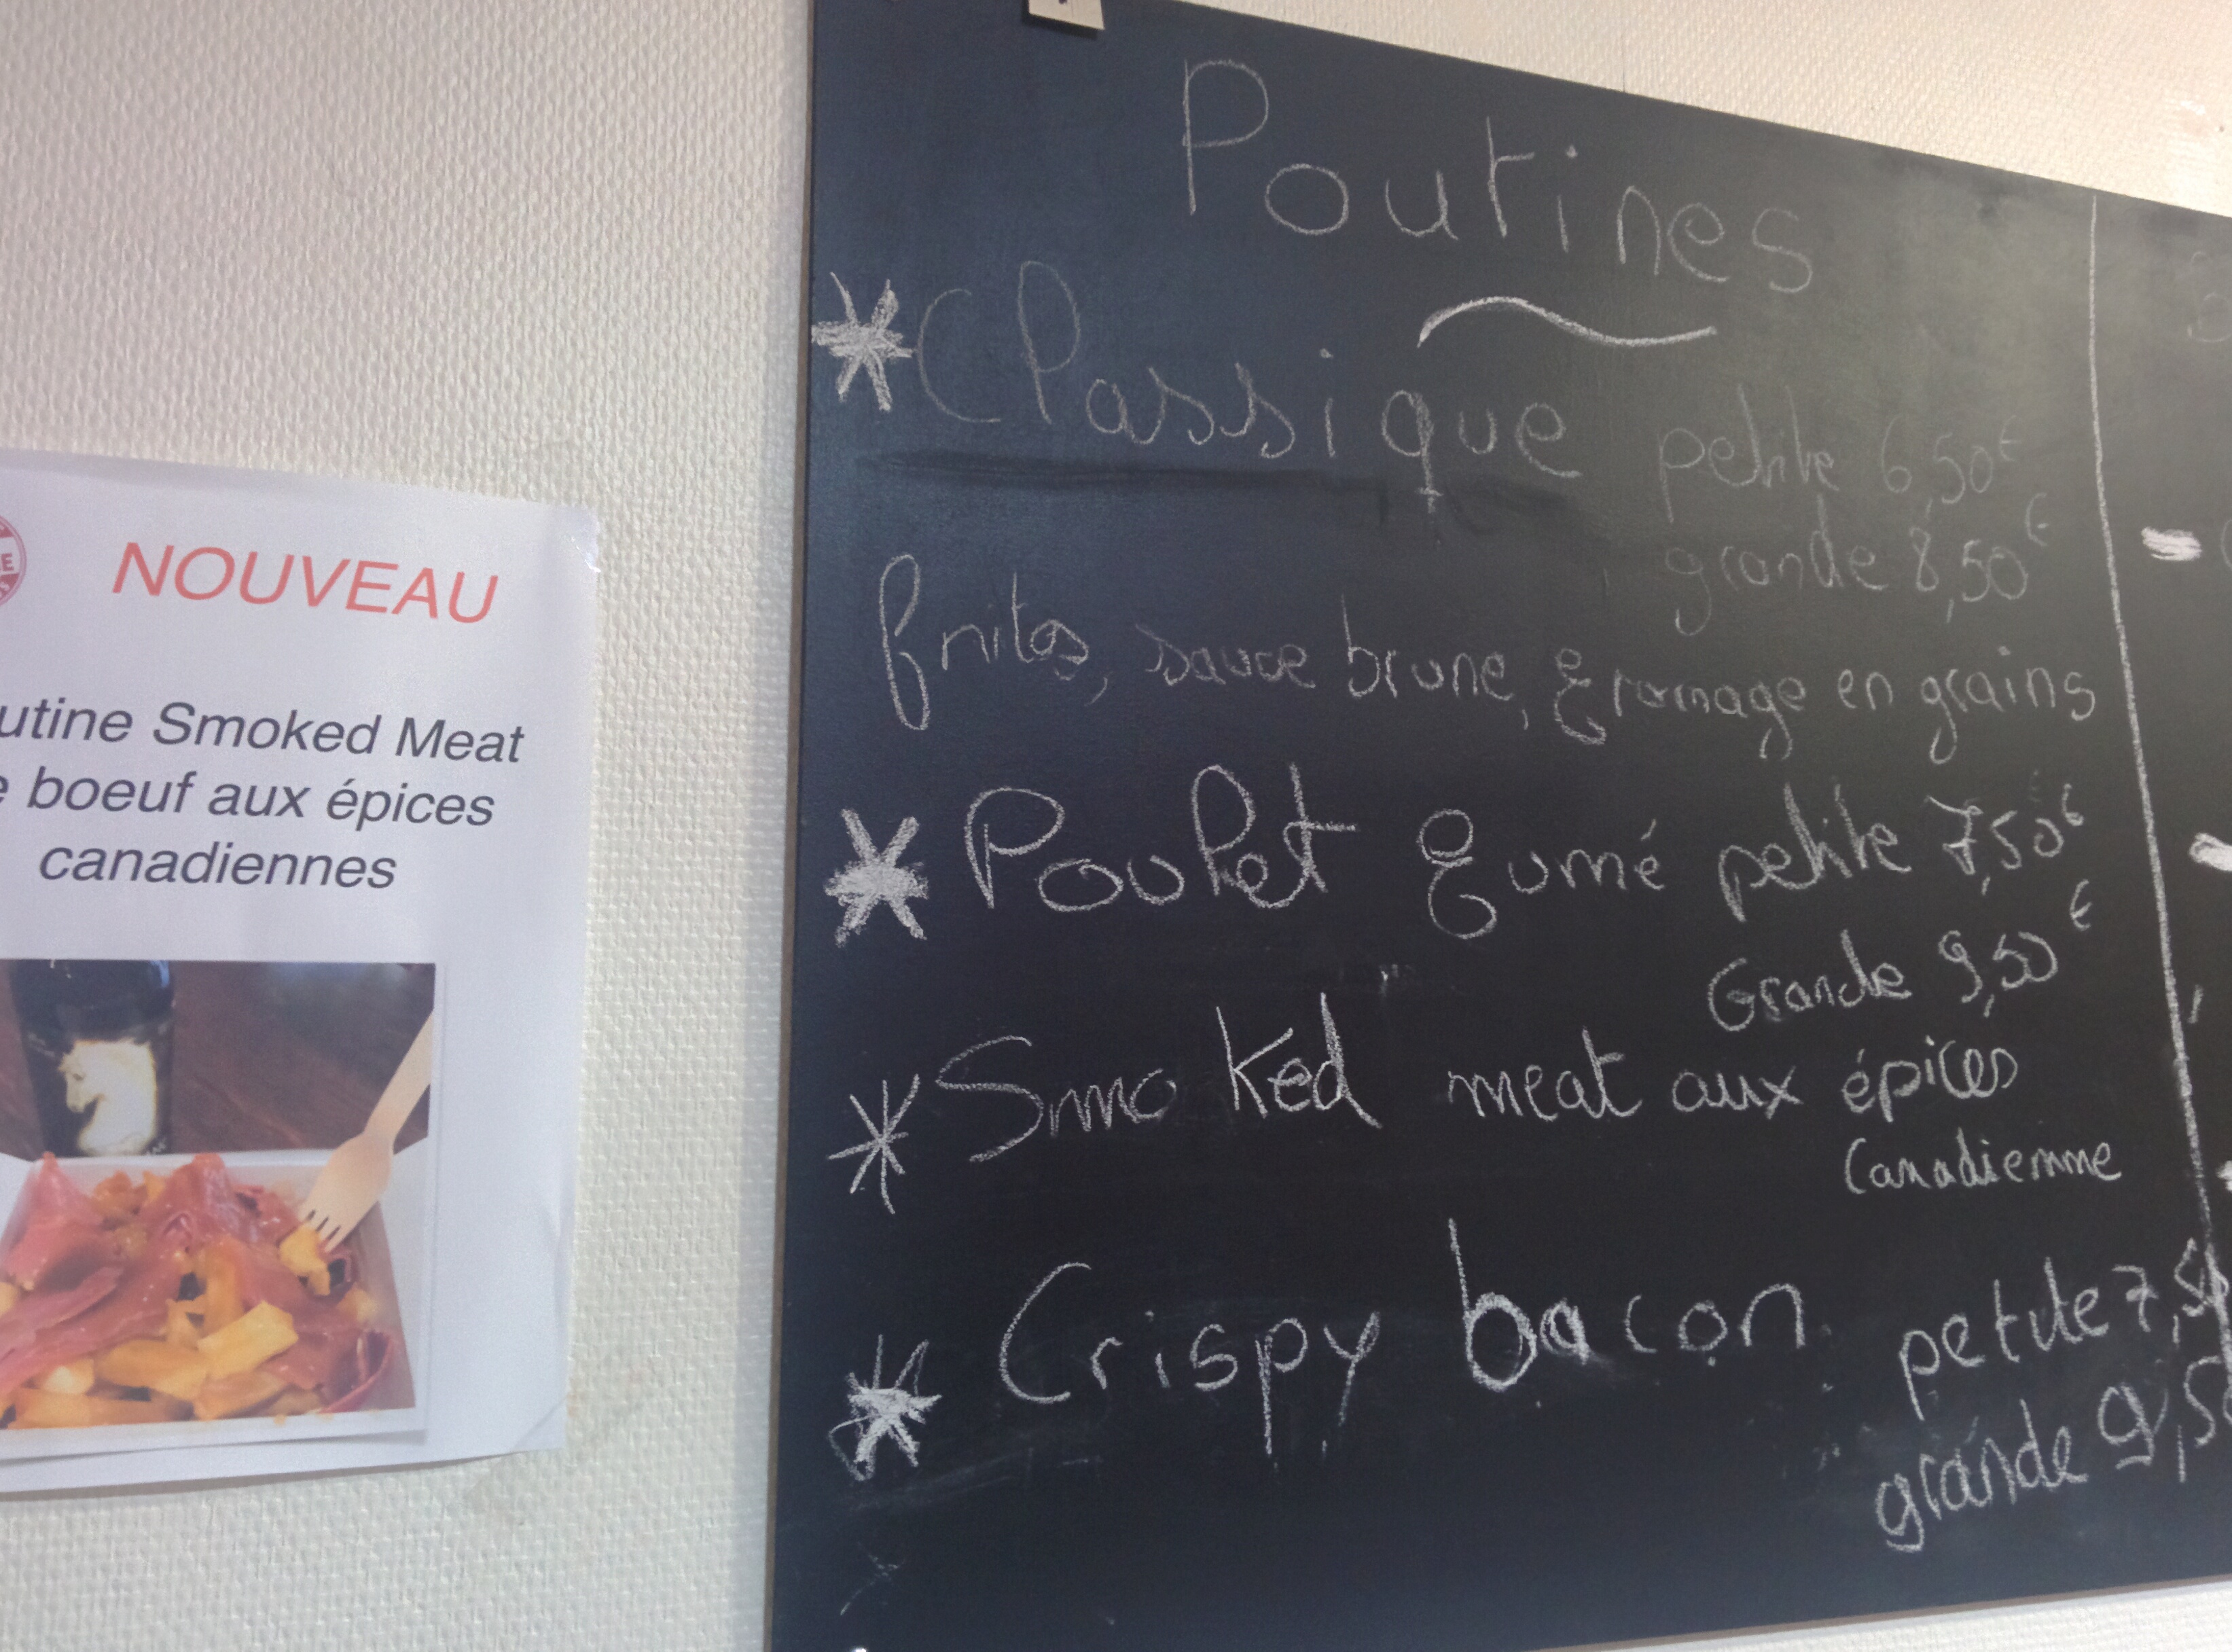 NOUVEAU
utine Smoked Meat
boeuf aux épices
canadiennes
Poutines
* Classique petite 6,50€
grande 8,50€
frites, sauce brune, fromage en grains
* Poulet fumé petite 7,50€
Grande 9,50€
* Smoked meat aux épices
Canadienne
* Crispy bacon petite 7,50
grande 9,50